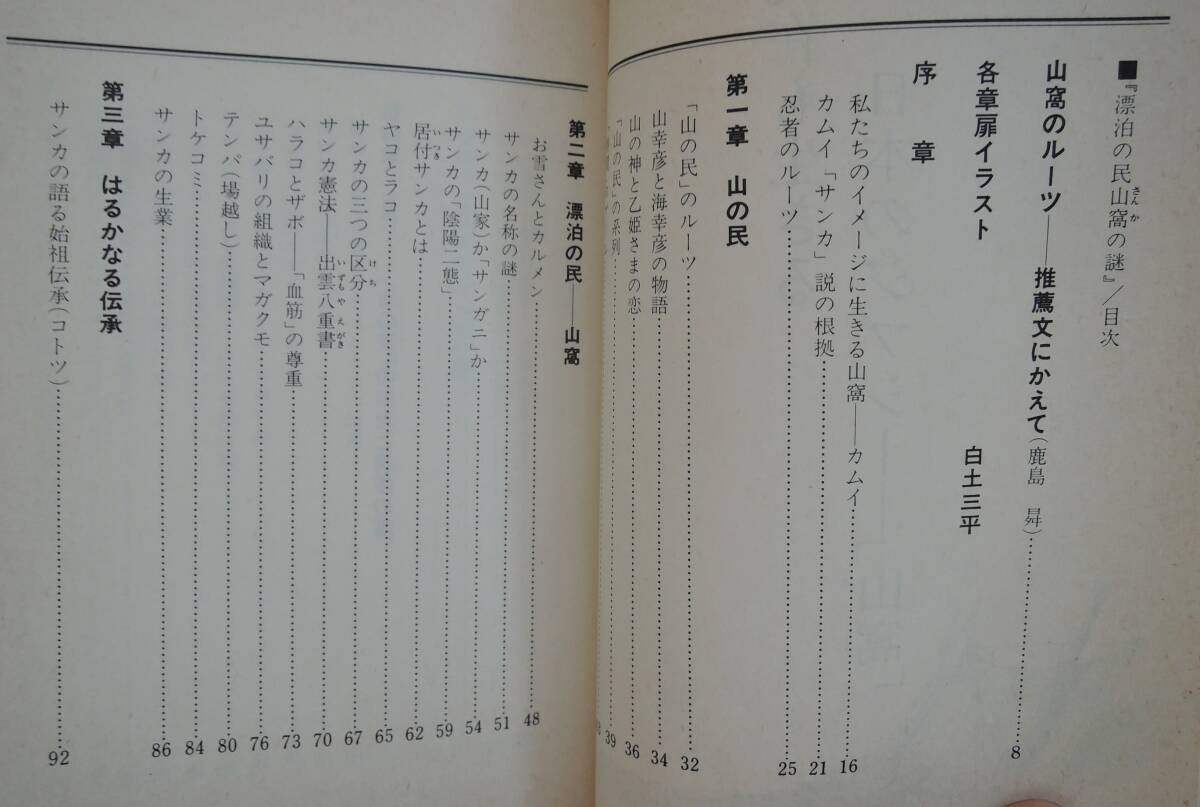 ■『漂泊の民山窩の謎』／目次
さんか
山窩のルーツ――推薦文にかえて（鹿島　曻）……8
各章扉イラスト　白土三平
序　章
私たちのイメージに生きる山窩――カムイ……16
カムイ「サンカ」説の根拠……21
忍者のルーツ……25
第一章　山の民
「山の民」のルーツ……32
山幸彦と海幸彦の物語……34
山の神と乙姫さまの恋……36
「山の民」の系列……39
第二章　漂泊の民――山窩
お雪さんとカルメン……48
サンカの名称の謎……51
サンカ（山家）か「サンガニ」か……54
サンカの「陰陽二態」……59
居付サンカとは……62
いつき
ヤコとラコ……65
サンカの三つの区分……67
けち
サンカ憲法――出雲八重書……70
いずもやえがき
ハラコとザボ――「血筋」の尊重……73
ユサバリの組織とマガクモ……76
テンパ（場越し）……80
トケコミ……84
サンカの生業……86
第三章　はるかなる伝承
サンカの語る始祖伝承（コトツ）……92